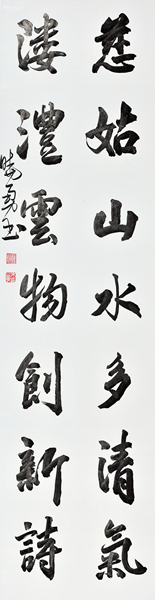 慈姑山水多清氣
溇澧雲物創新詩
曉勇书